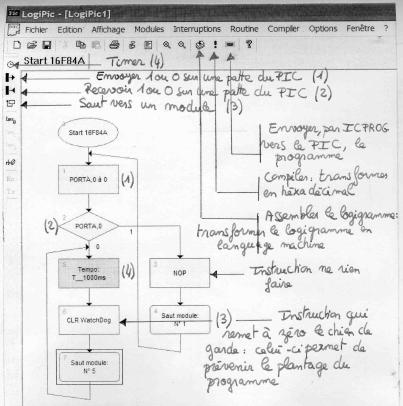 LogiPic - [LogiPic1]
Fichier Edition Affichage Modules Interruptions Routine Compiler Options Fenêtre ?
Start 16F84A
Timer (4)
Envoyer 1 ou 0 sur une patte du PIC (1)
Recevoir 1 ou 0 sur une patte du PIC (2)
Saut vers un module (3)
Start 16F84A
Envoyer, par ICPROG
vers le PIC, le
programme
1
PORTA,0 à 0
(1)
Compiler: transformer
en héxadécimal
(2)
2
PORTA,0
1
0
Assembler le logigramme:
transformer le logigramme en
language machine
5
Tempo:
T__1000ms
(4)
3
NOP
Instruction ne rien
faire
6
CLR WatchDog
4
Saut module:
N° 1
(3)
Instruction qui
remet à zéro le chien de
garde: celui-ci permet de
prévenir le plantage du
programme
7
Saut module:
N° 5